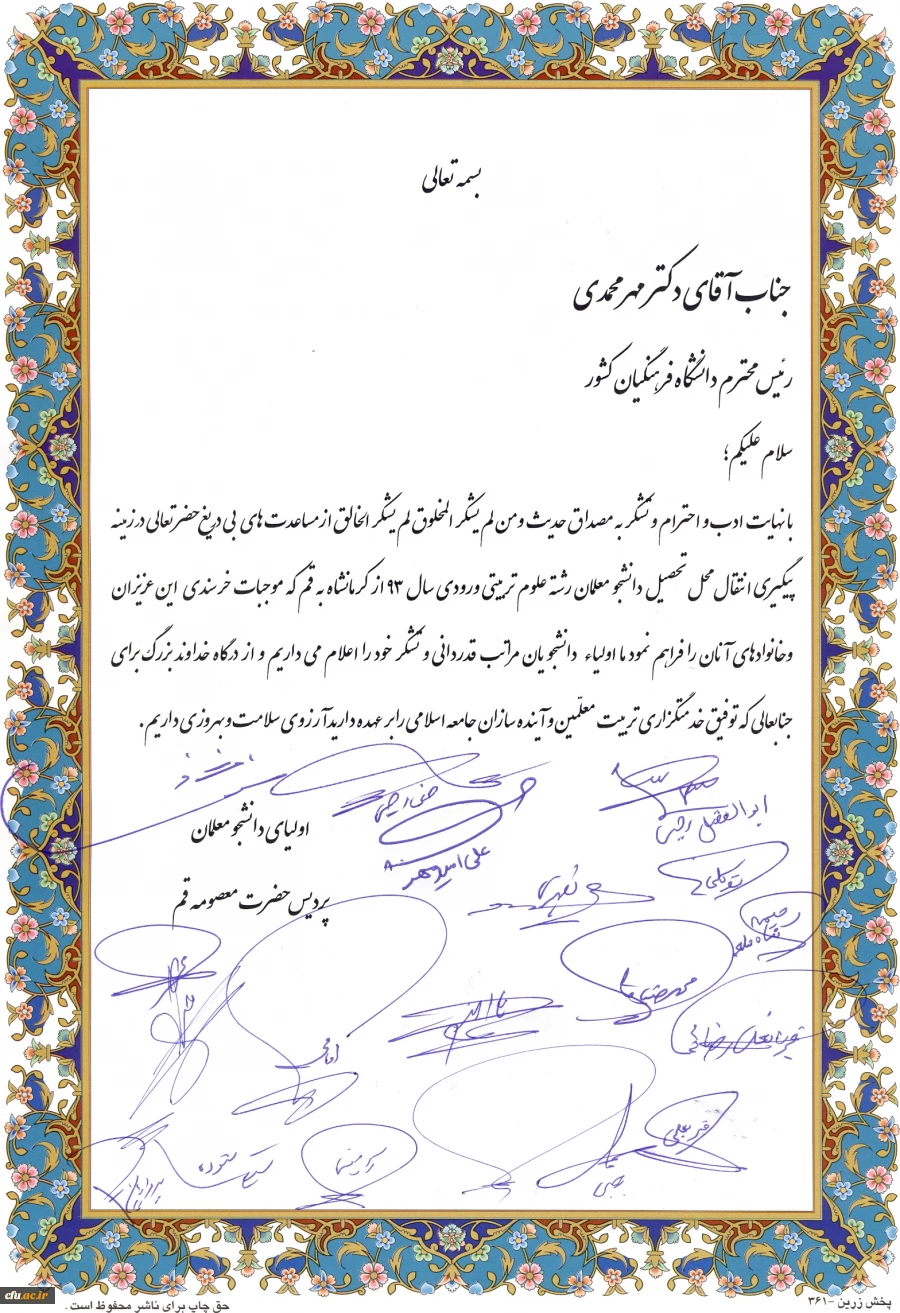 بسمه تعالی
جناب آقای دکتر مهرمحمدی
رئیس محترم دانشگاه فرهنگیان کشور
سلام علیکم؛
با نهایت ادب و احترام و تشکر به مصداق حدیث و من لم یشکر المخلوق لم یشکر الخالق از مساعدت های بی دریغ حضرتعالی در زمینه
پیگیری انتقال محل تحصیل دانشجو معلمان رشته علوم تربیتی ورودی سال ۹۳ از کرمانشاه به قم که موجبات خرسندی این عزیزان
و خانواده‌های آنان را فراهم نمود ما اولیاء دانشجویان مراتب قدردانی و تشکر خود را اعلام می داریم و از درگاه خداوند بزرگ برای
جنابعالی که توفیق خدمتگزاری تربیت معلّمین و آینده سازان جامعه اسلامی را بر عهده دارید آرزوی سلامت و بهروزی داریم.
ابوالفضل رجبی
اولیای دانشجو معلمان
پردیس حضرت معصومه قم
قربانعلی رضائی
ستوده
cfu.ac.ir
حق چاپ برای ناشر محفوظ است.
پخش زرین - ۳۶۱